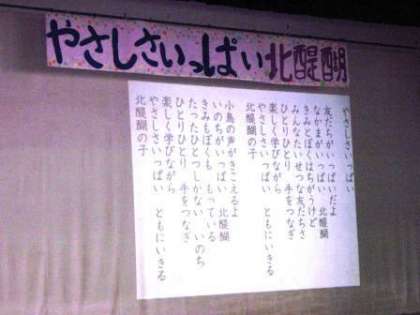 やさしさいっぱい北醍醐
やさしさいっぱい
友だちがいっぱいだよ
なかまがいっぱい 北醍醐
きみとぼくはちがうけど
みんなたいせつな友だちさ
ひとりひとり 手をつなぎ
楽しく学びながら
やさしさいっぱい ともにいきる
北醍醐の子
小鳥の声がきこえるよ
いのちがいっぱい 北醍醐
きみもぼくも もっている
たったひとつしかない いのち
ひとりひとり 手をつなぎ
楽しく学びながら
やさしさいっぱい ともにいきる
北醍醐の子